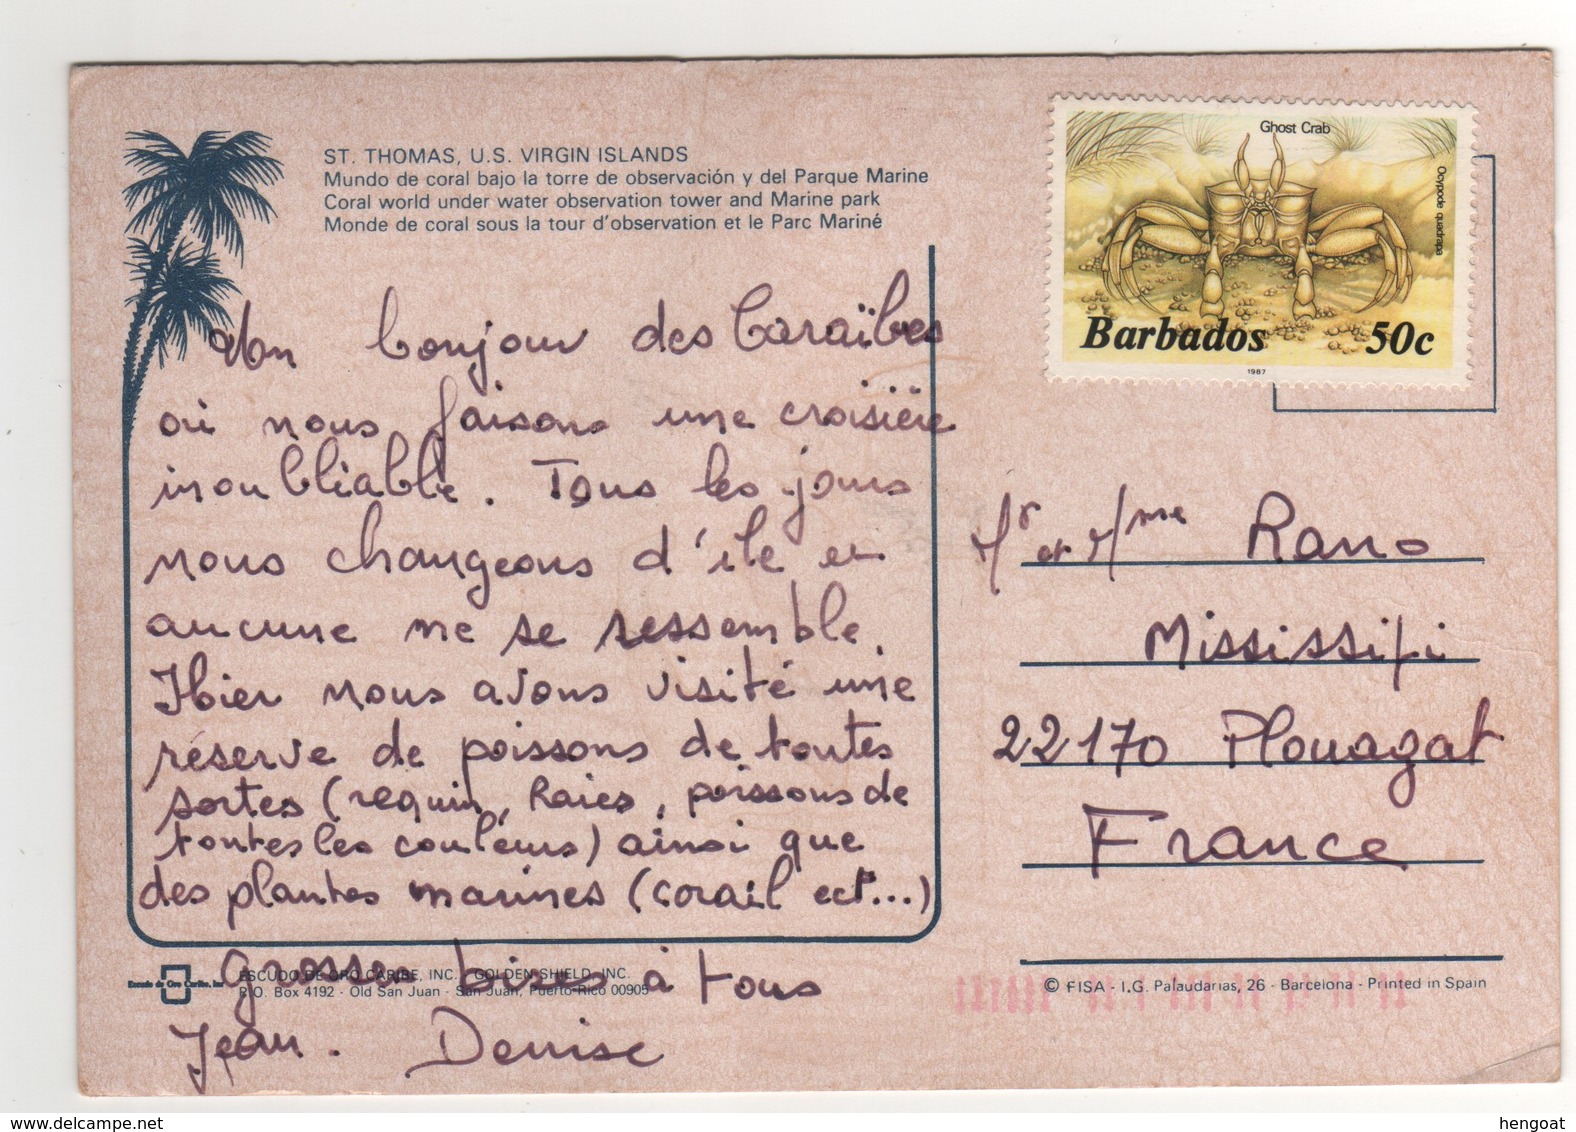 ST. THOMAS, U.S. VIRGIN ISLANDS
Mundo de coral bajo la torre de observación y del Parque Marine
Coral world under water observation tower and Marine park
Monde de coral sous la tour d'observation et le Parc Mariné
Ghost Crab
Ocypode quadrapa
Barbados 50c
1987
Un bonjour des Caraïbes
où nous faisons une croisière
inoubliable. Tous les jours
nous changeons d'île et
aucune ne se ressemble.
Hier nous avons visité une
réserve de poissons de toutes
sortes (requin, Raies, poissons de
toutes les couleurs) ainsi que
des plantes marines (corail ect...)
grosses bises à tous
Jean. Denise
Mr et Mme Rano
Mississipi
22170 Plouagat
France
Escudo de Oro Caribe, Inc
ESCUDO DE ORO CARIBE, INC. GOLDEN SHIELD, INC.
P.O. Box 4192 - Old San Juan - San Juan, Puerto Rico 00905
© FISA - I.G. Palaudarias, 26 - Barcelona - Printed in Spain
hengoat